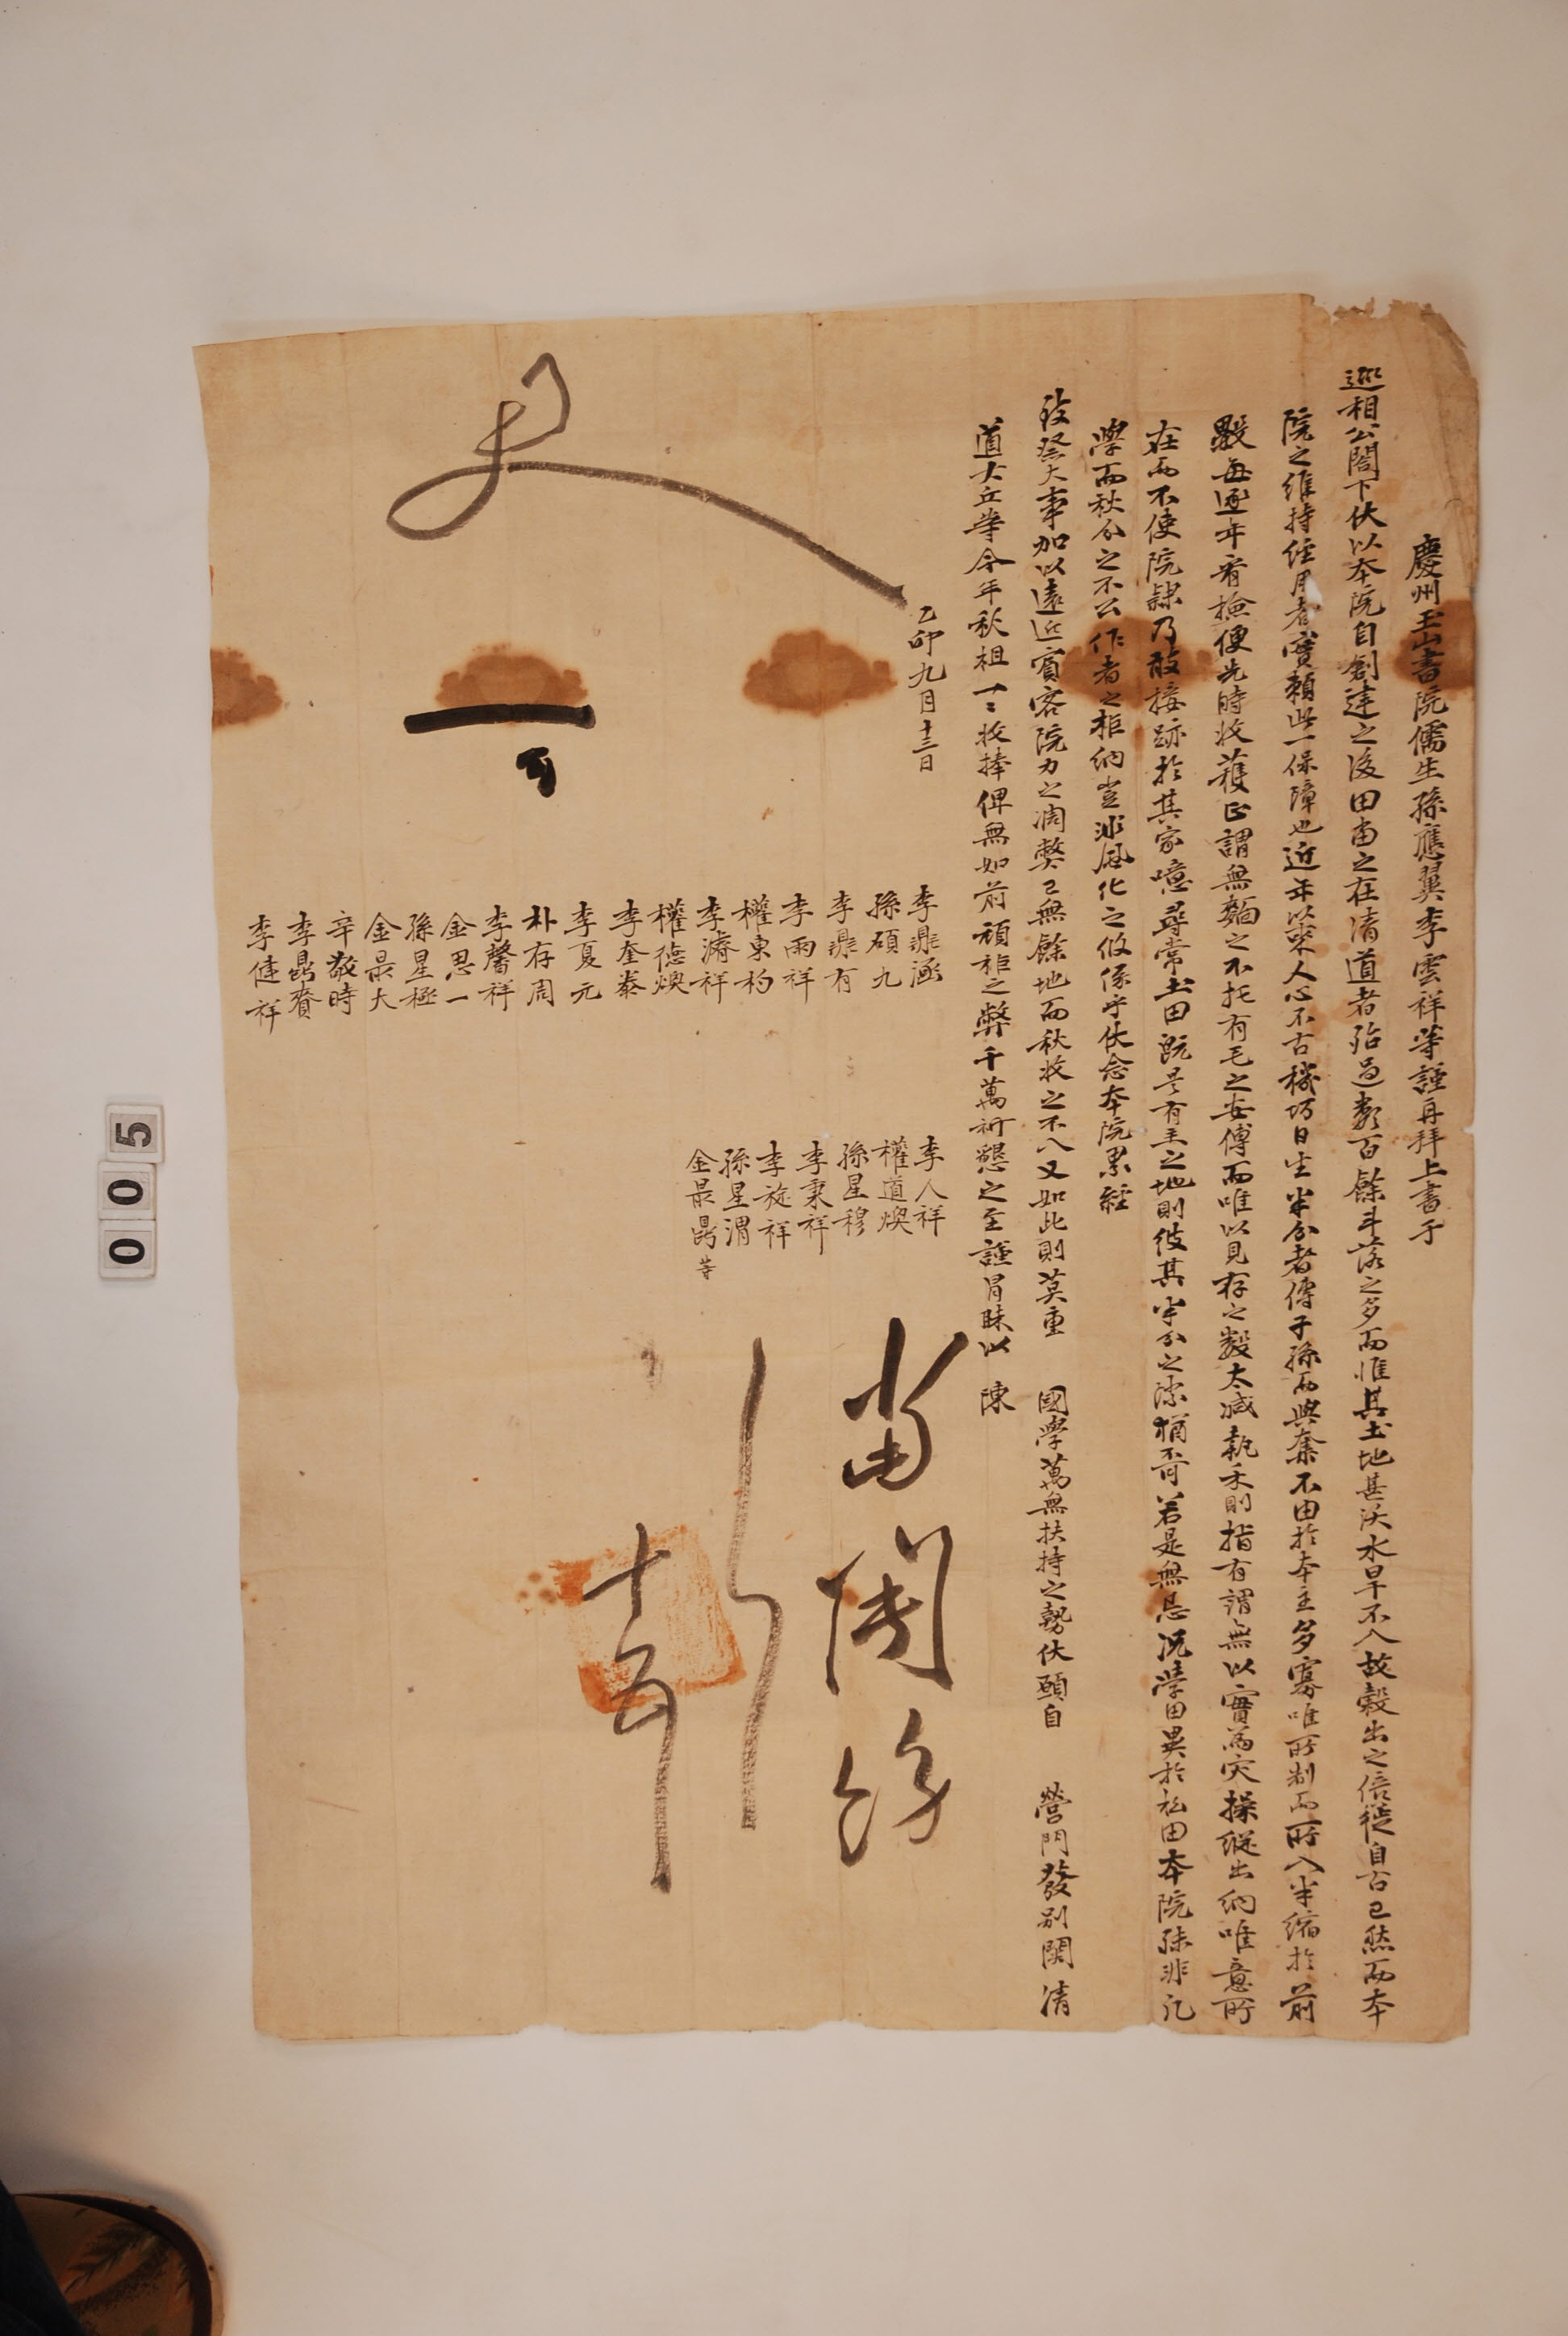 慶州玉山書院儒生孫應翼李雲祥等謹再拜上書于
巡相公閤下伏以本院自創建之後田畓之在清道者殆過數百餘斗落之多而惟其土地甚沃水旱不入故穀出之倍蓰自古已然而本
院之維持經用者實賴此一保障也近年以來人心不古機巧日生半分者傳子孫而與奪不由於本主多寡唯所制而所入半縮於前
殿每逐年看撿便先時收穫正謂無麵之不托有毛之安傅而唯以見存之數太减執禾則指有謂無以實爲灾操縱出納唯意所
在而不使院隷乃敢接跡於其家噫尋常土田旣是有主之地則彼其半分之際猶不可若是無忌况學田異於私田本院殊非凡
學而秋分之不公作者之拒納豈非風化之攸係乎伏念本院累經
致祭大事加以遠近賓客院力之凋弊已無餘地而秋收之不入又如此則莫重 國學萬無扶持之勢伏願自 營門發別關清
道大丘等今年秋租一一收捧俾無如前頑拒之弊千萬祈懇之至謹冒昧以 陳
乙卯九月十三日
李鼎涵
孫碩九
李鼎有
李雨祥
權東杓
李濬祥
權德煥
李奎泰
李夏元
朴存周
李馨祥
金思一
孫星極
金最大
辛敬時
李昌賚
李健祥
李人祥
權道煥
孫星穆
李秉祥
李旋祥
孫星渭
金最昌 等
使
當關飭
向事
十五